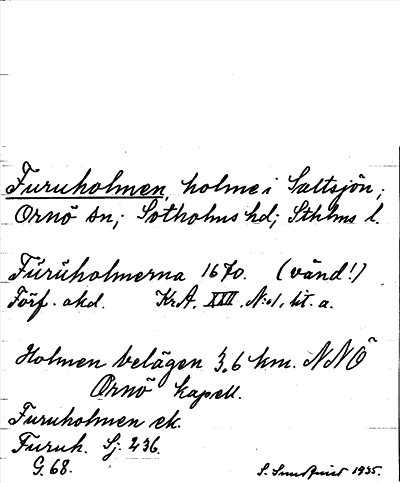 Furuholmen, holme i Saltsjön;
Ornö sn; Sotholms hd; Sthlms l.
Fŭrŭholmerna 1670. (vänd!)
Förf. okd. Kr.A. XXII. N:o1, lit. a.
Holmen belägen 3,6 km. NNÖ
Ornö kapell.
Furuholmen ek.
Furuh. Sj. 236.
G. 68. S. Sundquist 1935.